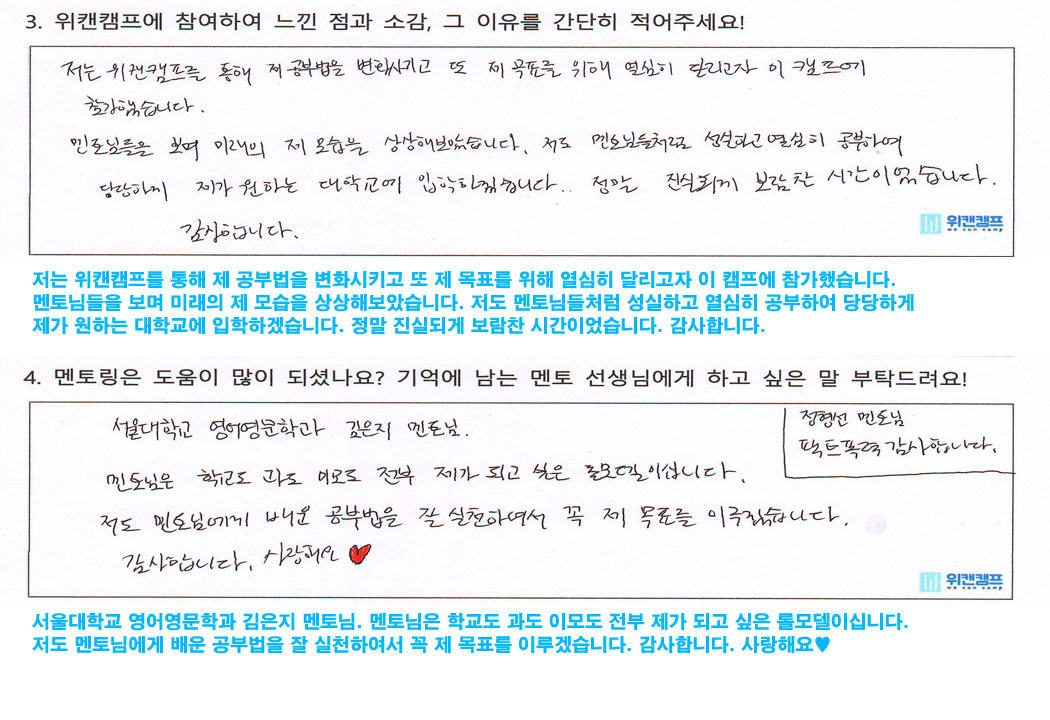 3. 위캔캠프에 참여하여 느낀 점과 소감, 그 이유를 간단히 적어주세요!
저는 위캔캠프를 통해 제 공부법을 변화시키고 또 제 목표를 위해 열심히 달리고자 이 캠프에
참가했습니다.
멘토님들을 보며 미래의 제 모습을 상상해보았습니다. 저도 멘토님들처럼 성실하고 열심히 공부하여
당당하게 제가 원하는 대학교에 입학하겠습니다.. 정말 진실되게 보람찬 시간이었습니다.
감사합니다.
위캔캠프
we can camp
저는 위캔캠프를 통해 제 공부법을 변화시키고 또 제 목표를 위해 열심히 달리고자 이 캠프에 참가했습니다.
멘토님들을 보며 미래의 제 모습을 상상해보았습니다. 저도 멘토님들처럼 성실하고 열심히 공부하여 당당하게
제가 원하는 대학교에 입학하겠습니다. 정말 진실되게 보람찬 시간이었습니다. 감사합니다.
4. 멘토링은 도움이 많이 되셨나요? 기억에 남는 멘토 선생님에게 하고 싶은 말 부탁드려요!
정형선 멘토님
팩트폭력 감사합니다.
서울대학교 영어영문학과 김은지 멘토님.
멘토님은 학교도 과도 이모도 전부 제가 되고 싶은 롤모델이십니다.
저도 멘토님에게 배운 공부법을 잘 실천하여서 꼭 제 목표를 이루겠습니다.
감사합니다. 사랑해요 ♥
위캔캠프
we can camp
서울대학교 영어영문학과 김은지 멘토님. 멘토님은 학교도 과도 이모도 전부 제가 되고 싶은 롤모델이십니다.
저도 멘토님에게 배운 공부법을 잘 실천하여서 꼭 제 목표를 이루겠습니다. 감사합니다. 사랑해요♥